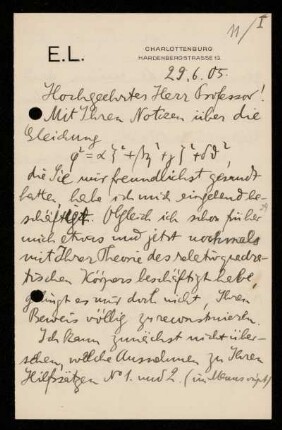 11/I
E.L.
CHARLOTTENBURG
HARDENBERGSTRASSE 12.
29.6.05.
Hochgeehrtes Herr Professor!
Mit Ihren Notizen über die
Gleichung
φ² = αξ² + βη² + γζ² + δϑ²,
die Sie mir freundlichst gesandt
hatten, habe ich mich eingehend be-
schäftigt. Obgleich ich schon früher
mich etwas und jetzt nochmals
mit Ihrer Theorie des relativquadra-
tischen Körpers beschäftigt habe,
gelingt es mir doch nicht, Ihren
Beweis völlig zu reconstruieren.
Ich kann zunächst nicht über-
sehen, welche Ausnahmen zu Ihren
Hilfssätzen No 1. und 2. (im Manuscript)